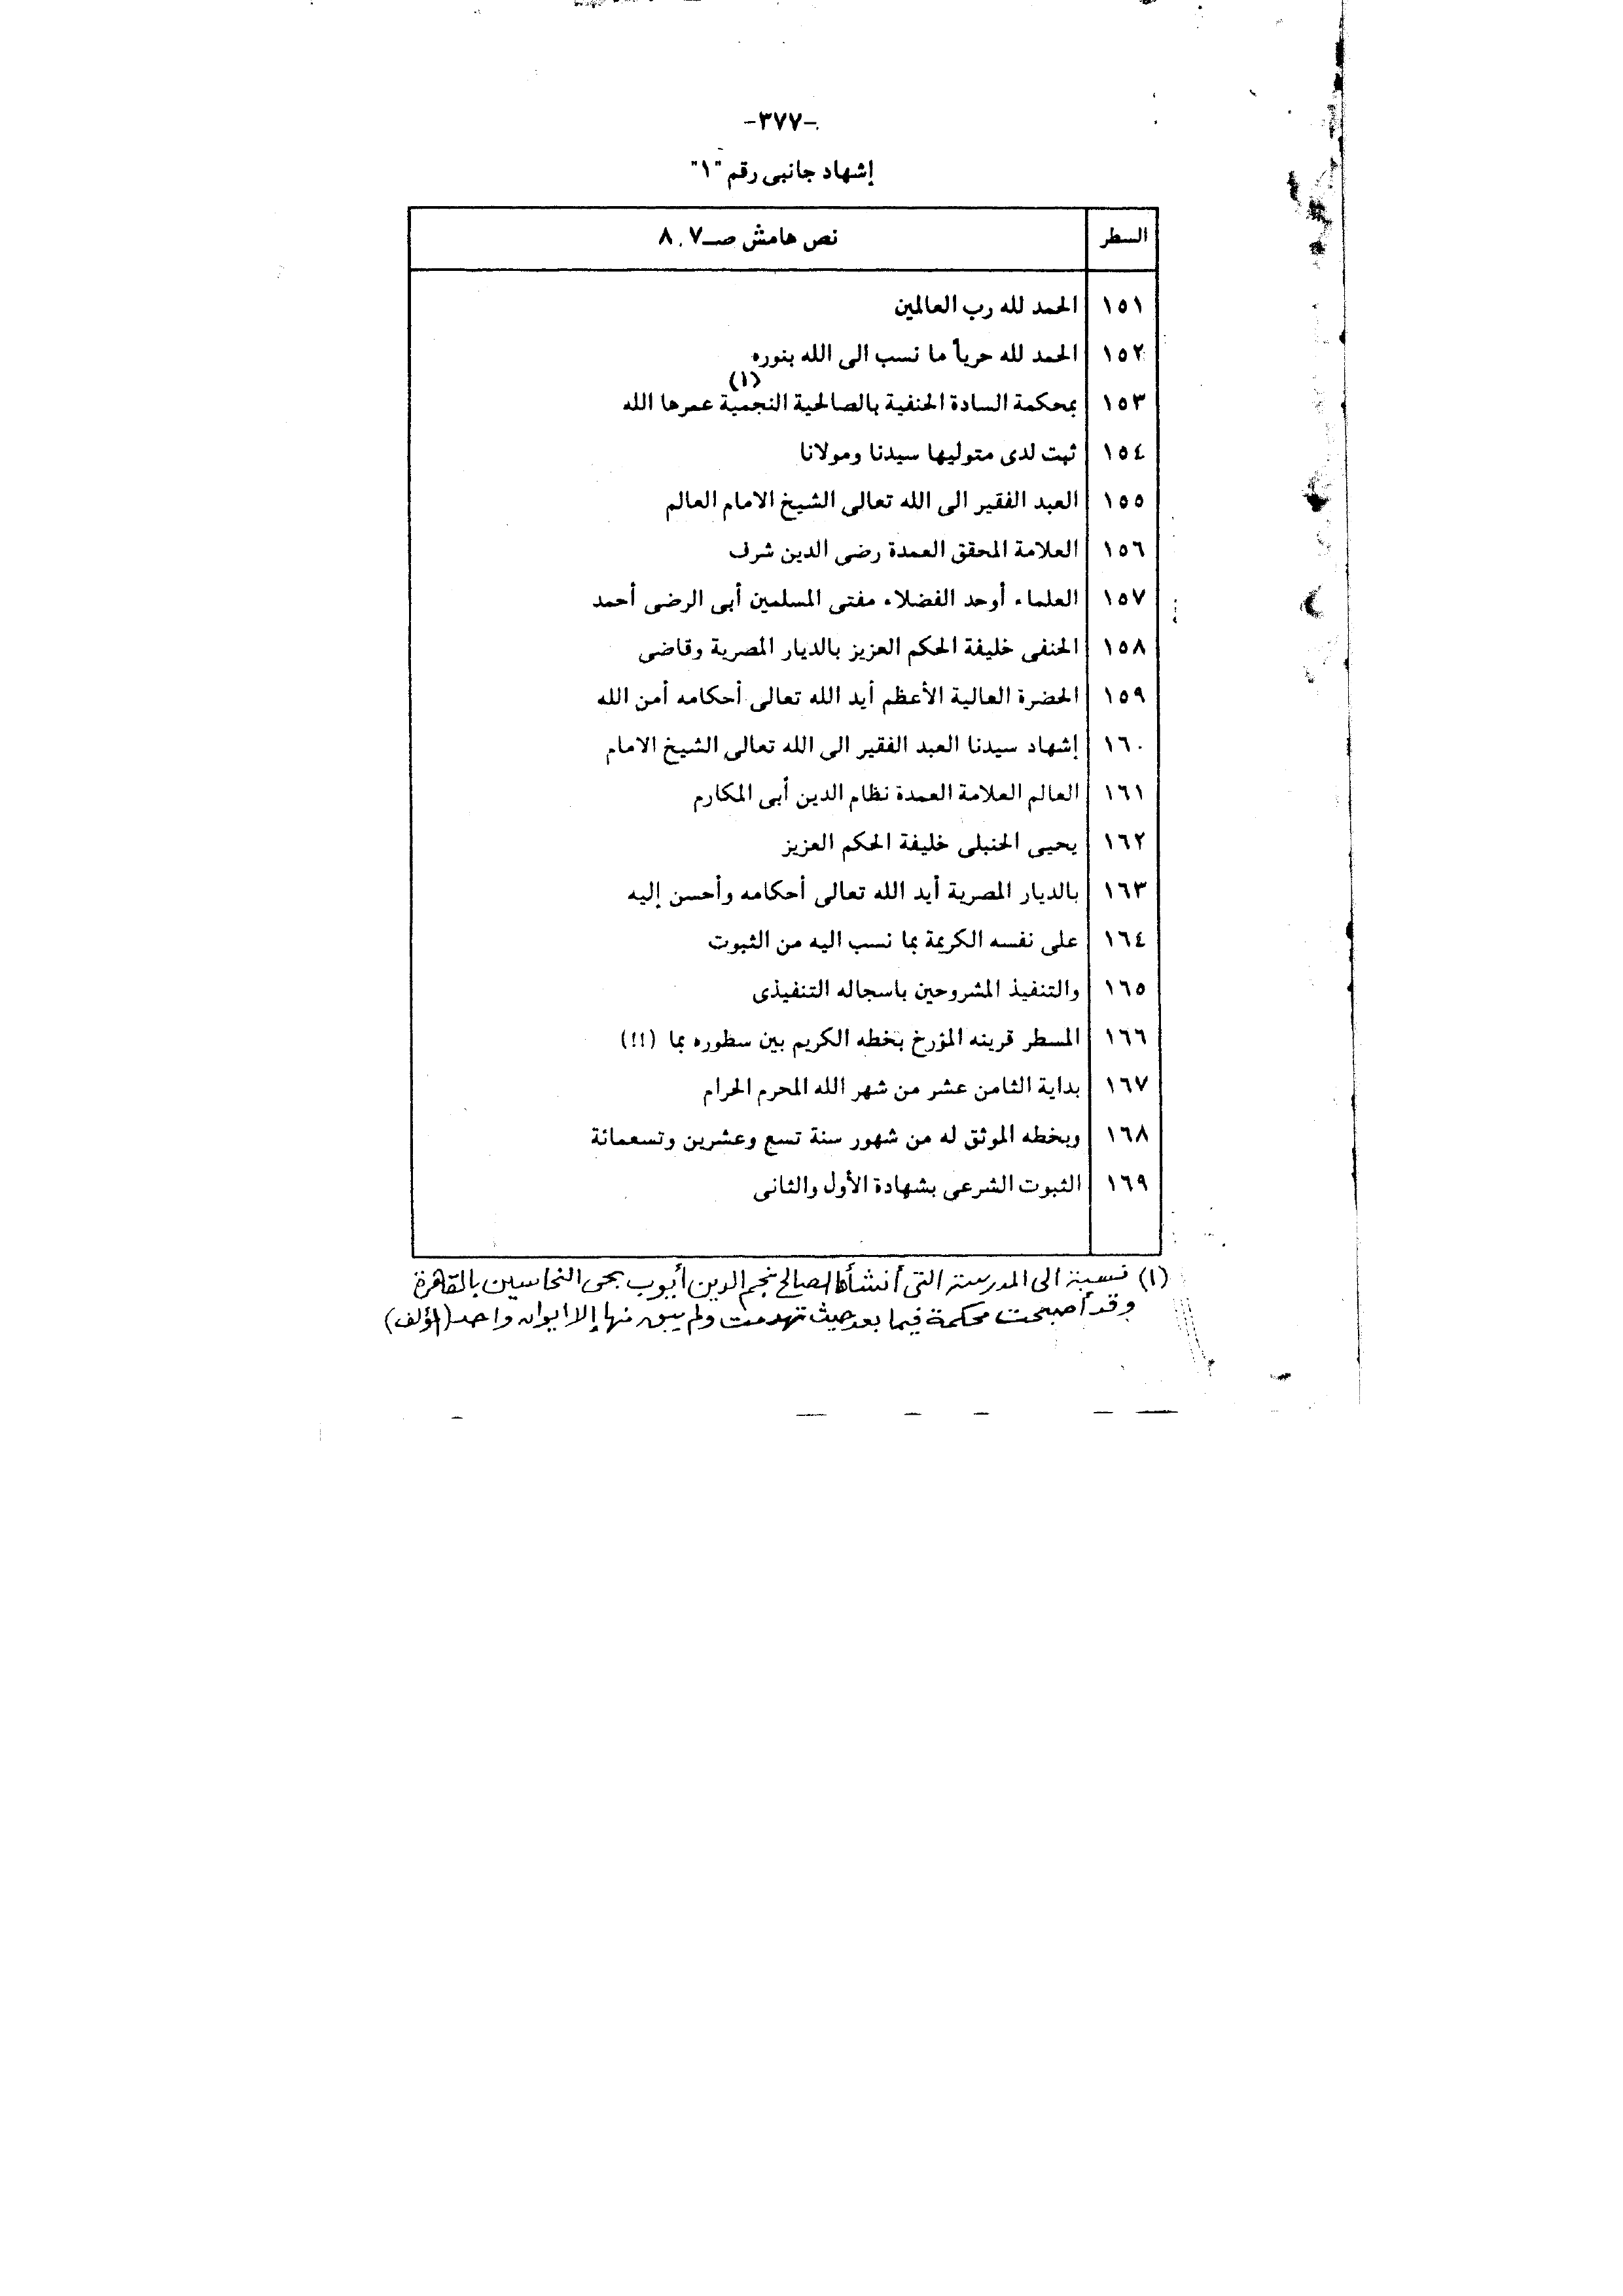 -٣٧٧-
إشهاد جانبى رقم "١"
السطر نص هامش صـ ٧ ، ٨
١٥١ الحمد لله رب العالمين
١٥٢ الحمد لله حرياً ما نسب الى الله بنوره
١٥٣ بمحكمة السادة الحنفية بالصالحية النجمية (١) عمرها الله
١٥٤ ثبت لدى متوليها سيدنا ومولانا
١٥٥ العبد الفقير الى الله تعالى الشيخ الامام العالم
١٥٦ العلامة المحقق العمدة رضى الدين شرف
١٥٧ العلماء أوحد الفضلاء مفتى المسلمين أبى الرضى أحمد
١٥٨ الحنفى خليفة الحكم العزيز بالديار المصرية وقاضى
١٥٩ الحضرة العالية الأعظم أيد الله تعالى أحكامه أمن الله
١٦٠ إشهاد سيدنا العبد الفقير الى الله تعالى الشيخ الامام
١٦١ العالم العلامة العمدة نظام الدين أبى المكارم
١٦٢ يحيى الحنبلى خليفة الحكم العزيز
١٦٣ بالديار المصرية أيد الله تعالى أحكامه وأحسن إليه
١٦٤ على نفسه الكريمة بما نسب اليه من الثبوت
١٦٥ والتنفيذ المشروحين باسجاله التنفيذى
١٦٦ المسطر قرينه المؤرخ بخطه الكريم بين سطوره بما (!!)
١٦٧ بداية الثامن عشر من شهر الله المحرم الحرام
١٦٨ وبخطه الموثق له من شهور سنة تسع وعشرين وتسعمائة
١٦٩ الثبوت الشرعى بشهادة الأول والثانى
(١) نسبة الى المدرسة التى أنشأها الصالح نجم الدين أيوب بحى النحاسين بالقاهرة
وقد أصبحت محكمة فيما بعد حيث تهدمت ولم يبق منها إلا ايوان واحد (المؤلف)